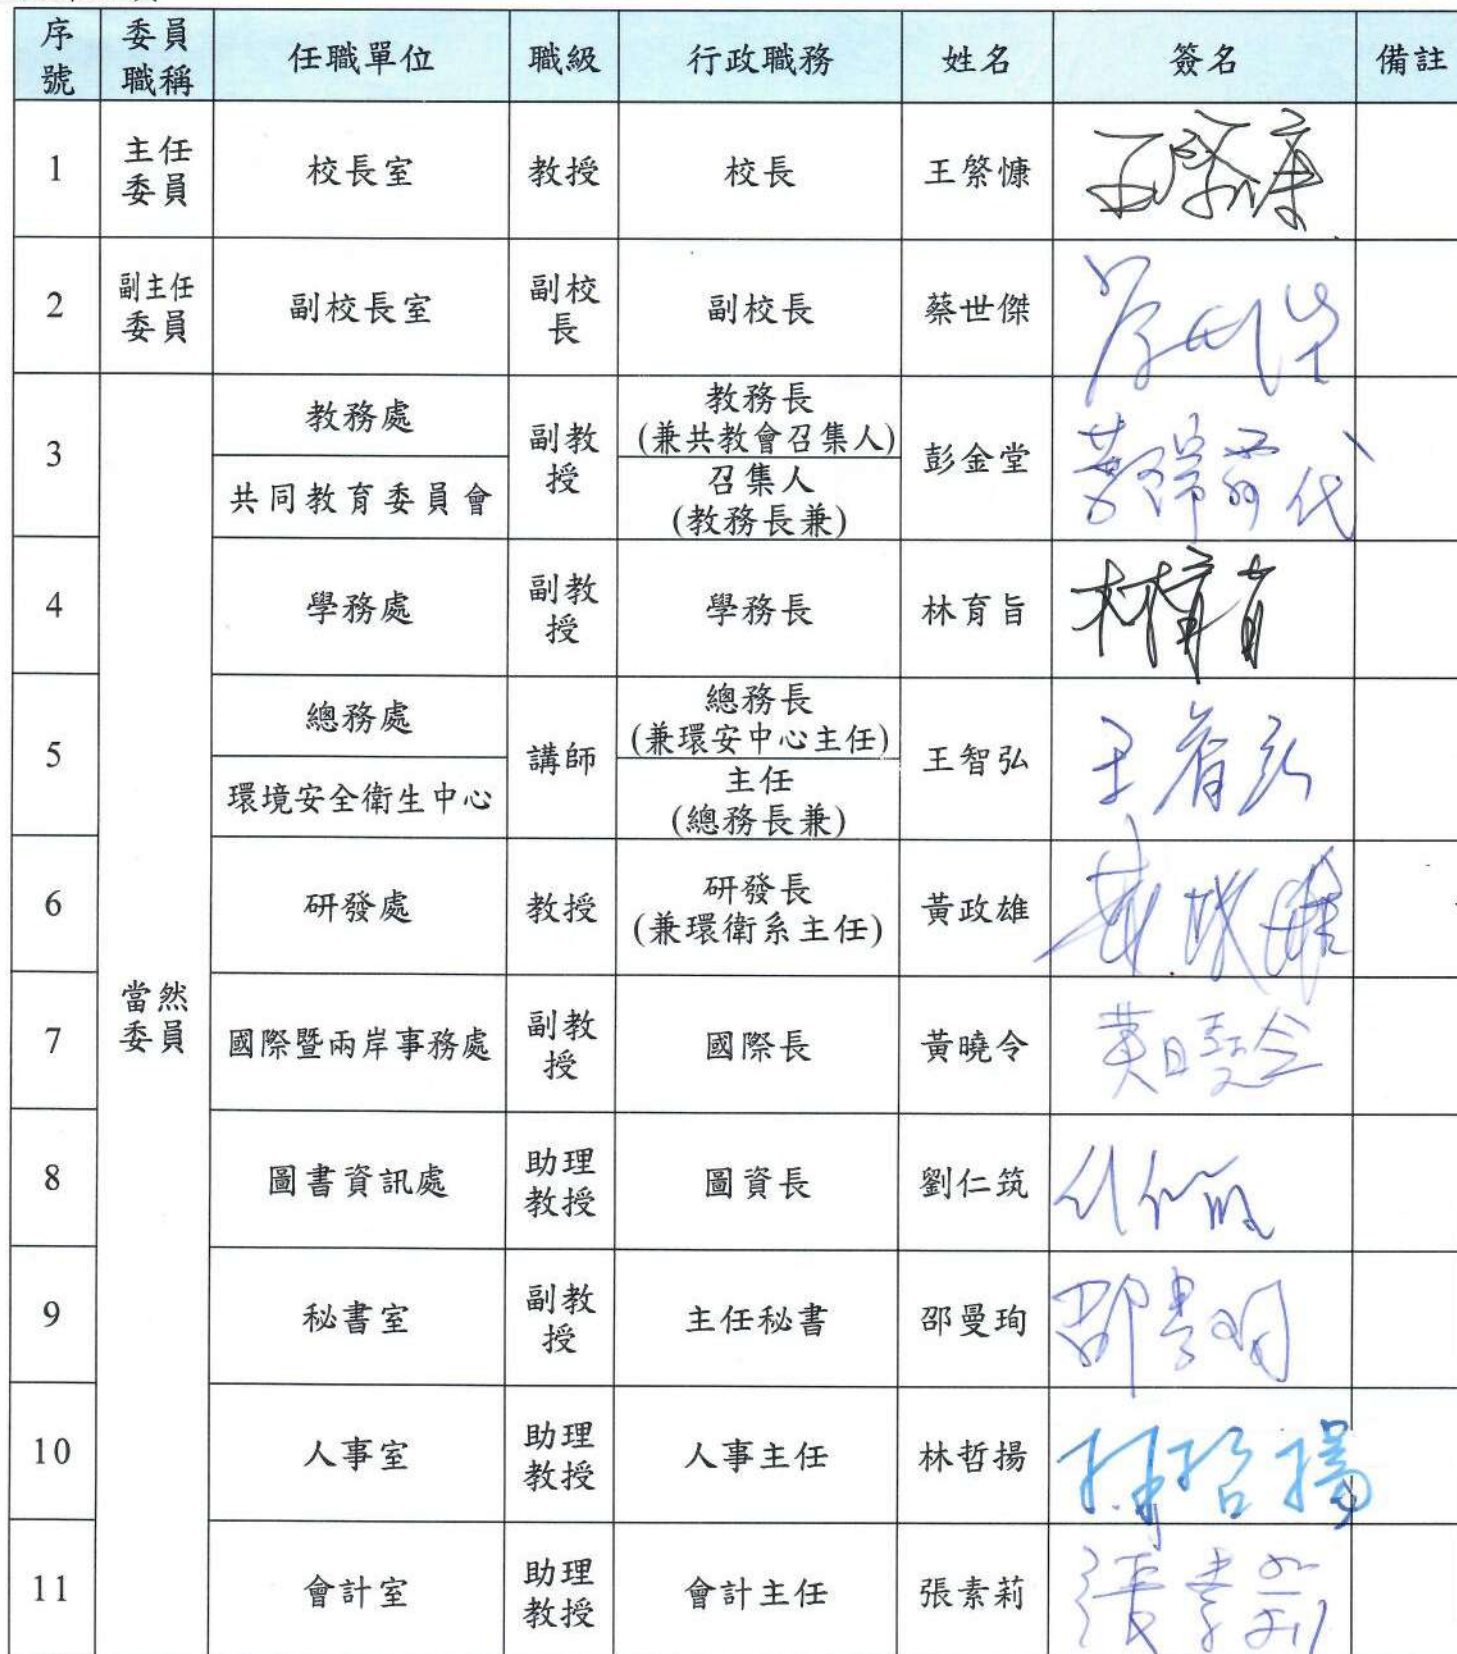 序號 委員職稱 任職單位 職級 行政職務 姓名 簽名 備註
1 主任委員 校長室 教授 校長 王綮慷 王綮慷
2 副主任委員 副校長室 副校長 副校長 蔡世傑 蔡世傑
當然委員
3 教務處 副教授 教務長(兼共教會召集人) 彭金堂
共同教育委員會 召集人(教務長兼) 代
4 學務處 副教授 學務長 林育旨 林育旨
5 總務處 講師 總務長(兼環安中心主任) 王智弘 王智弘
環境安全衛生中心 主任(總務長兼)
6 研發處 教授 研發長(兼環衛系主任) 黃政雄 黃政雄
7 國際暨兩岸事務處 副教授 國際長 黃曉令 黃曉令
8 圖書資訊處 助理教授 圖資長 劉仁筑
9 秘書室 副教授 主任秘書 邵曼珣 邵曼珣
10 人事室 助理教授 人事主任 林哲揚 林哲揚
11 會計室 助理教授 會計主任 張素莉 張素莉